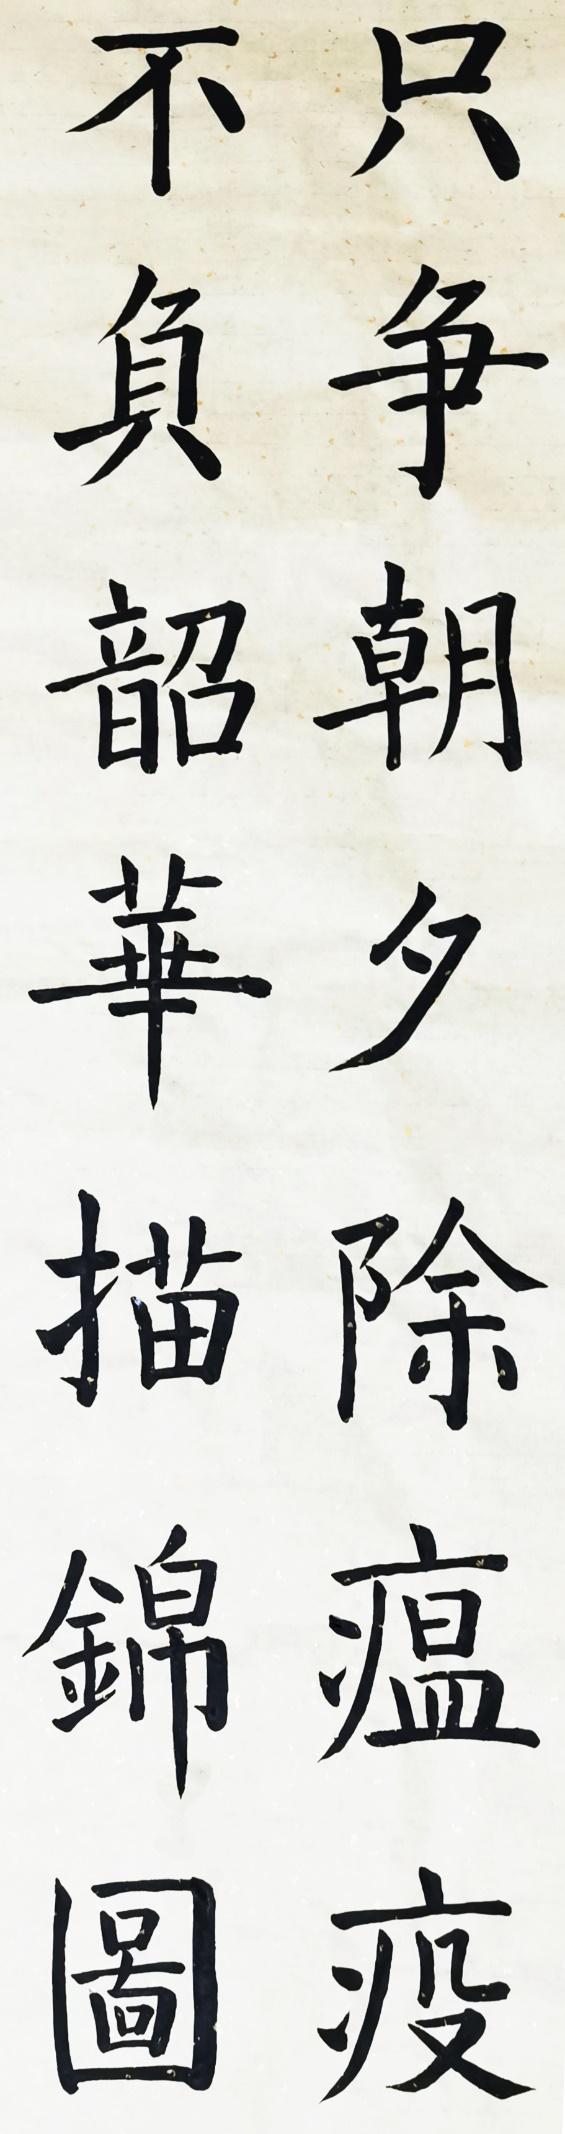 只争朝夕除瘟疫
不負韶華描錦圖